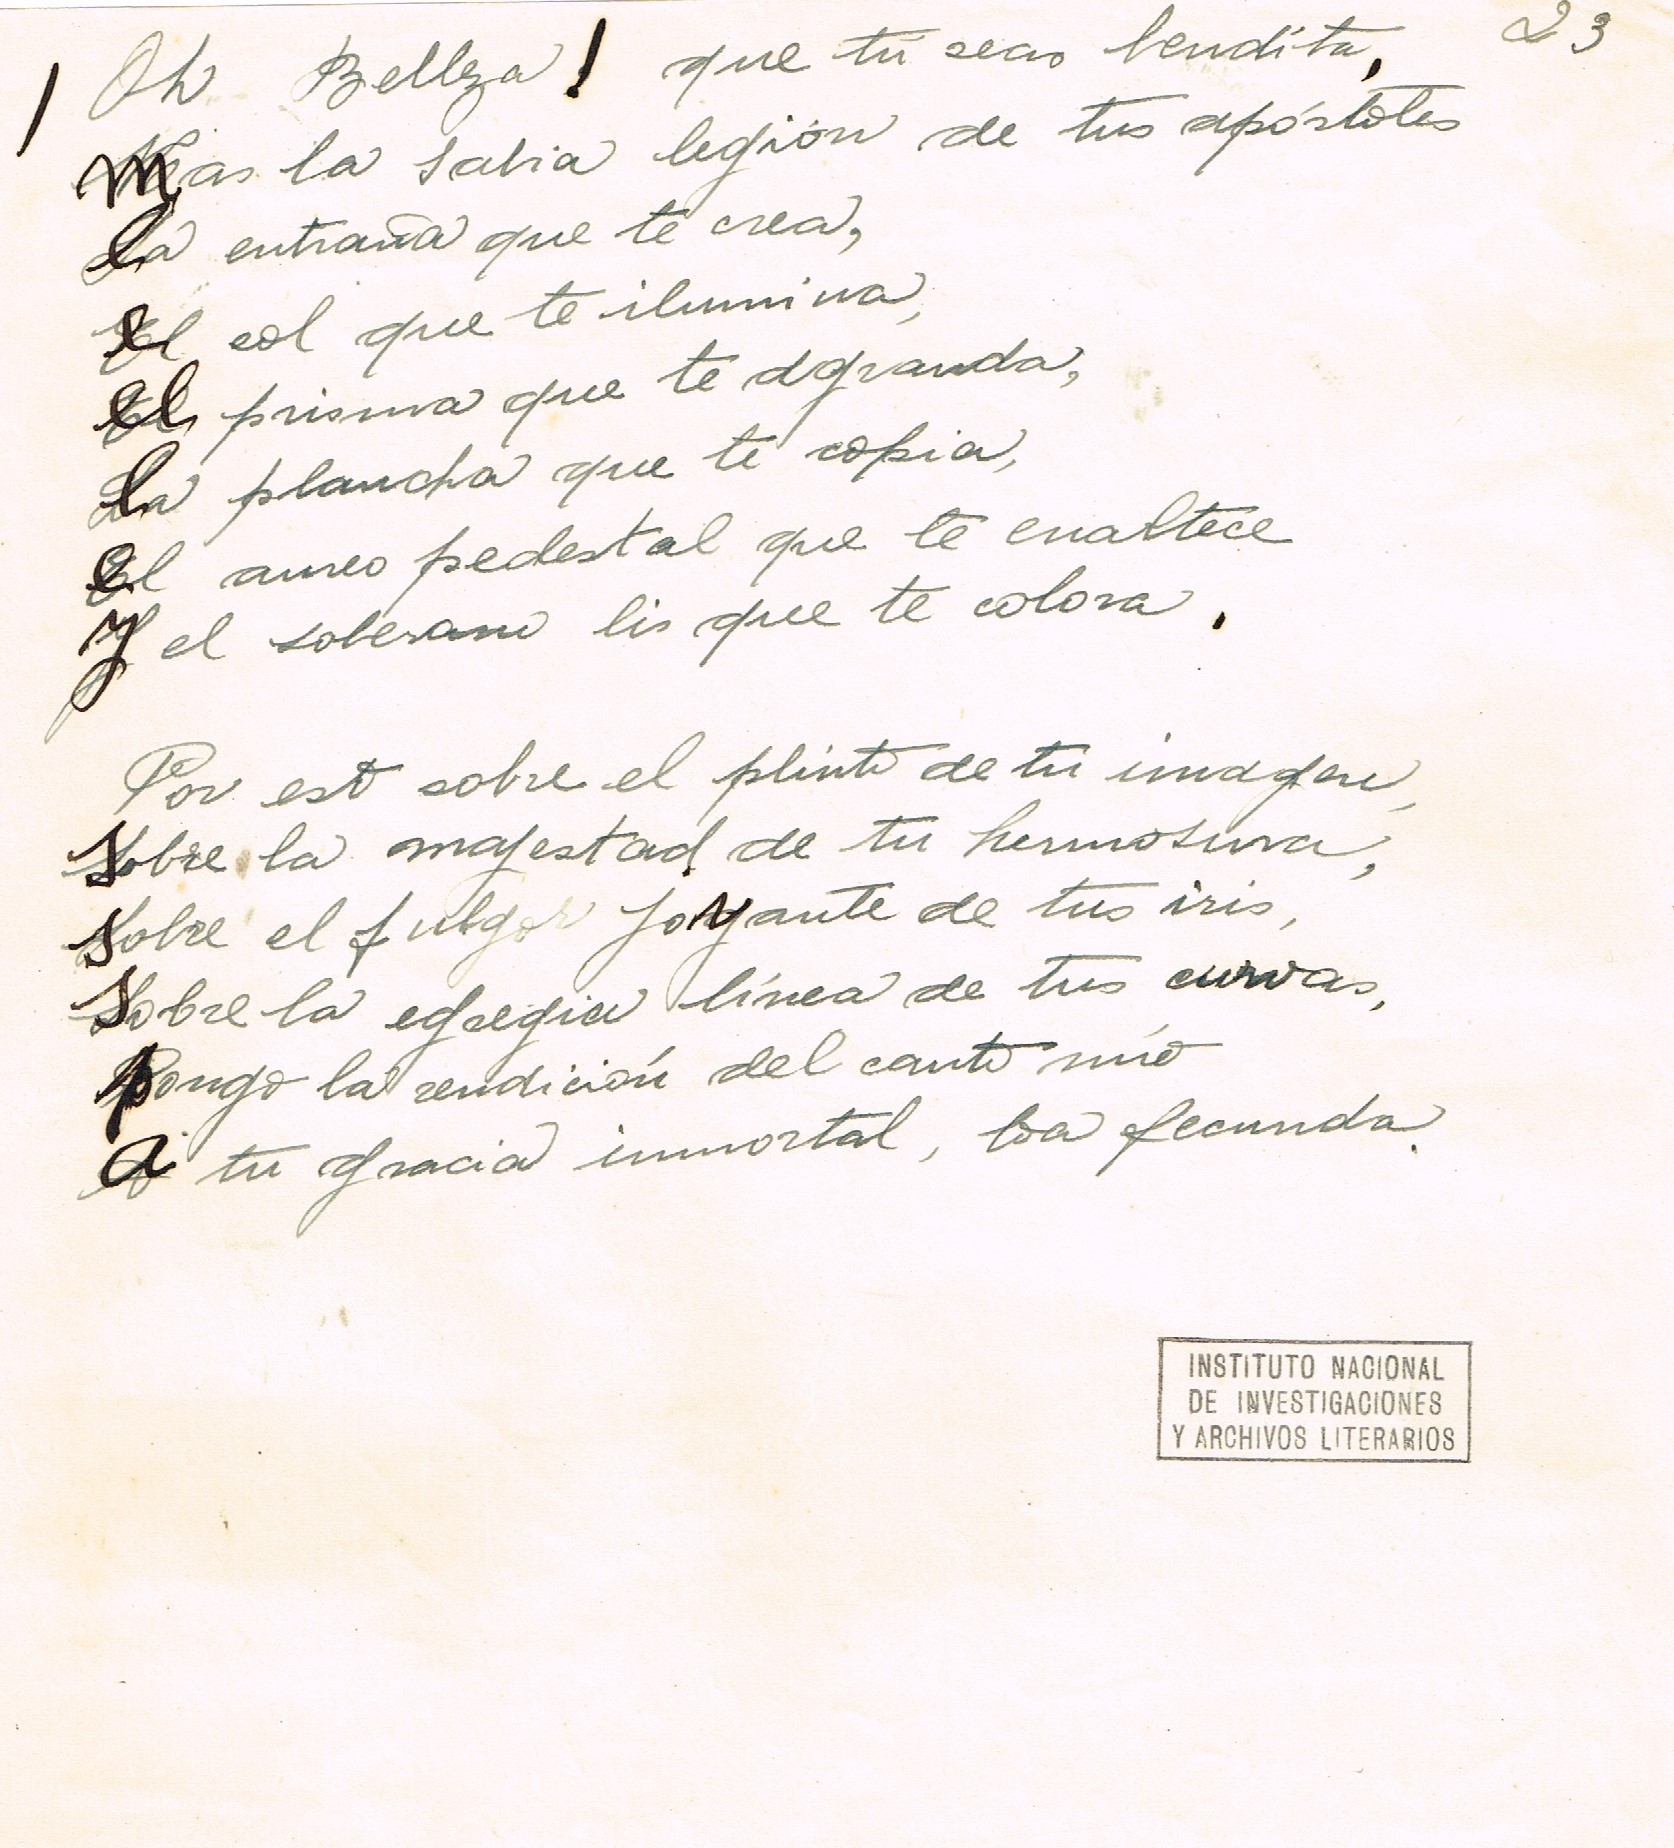 23
¡Oh Belleza! que tú seas bendita,
mas la sabia legión de tus apóstoles
la entraña que te crea,
el sol que te ilumina,
el prisma que te agranda,
la plancha que te copia,
el aureo pedestal que te enaltece
y el soberano lis que te colora.
Por esto sobre el plinto de tu imagen,
sobre la majestad de tu hermosura,
sobre el fulgor joyante de tus iris,
sobre la egregia línea de tus curvas,
pongo la rendición del canto mío
a tu gracia inmortal, loa fecunda.
INSTITUTO NACIONAL
DE INVESTIGACIONES
Y ARCHIVOS LITERARIOS